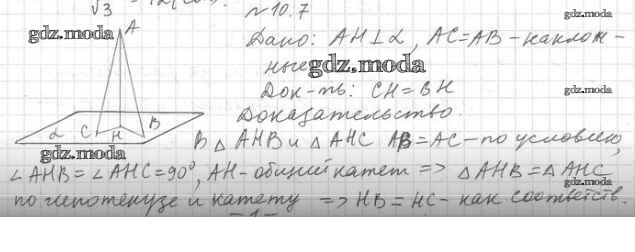 √3
№10.7
gdz.moda
gdz.moda
A
Дано: AH⊥α, AC=AB - наклон-
ные
gdz.moda
Док-ть: CH=BH
gdz.moda
Доказательство.
α C H B
В △ AHB и △ AHC AB=AC - по условию,
gdz.moda
∠AHB = ∠AHC = 90°, AH - общий катет => △AHB = △AHC
gdz.moda
по гипотенузе и катету => HB = HC - как соответств.